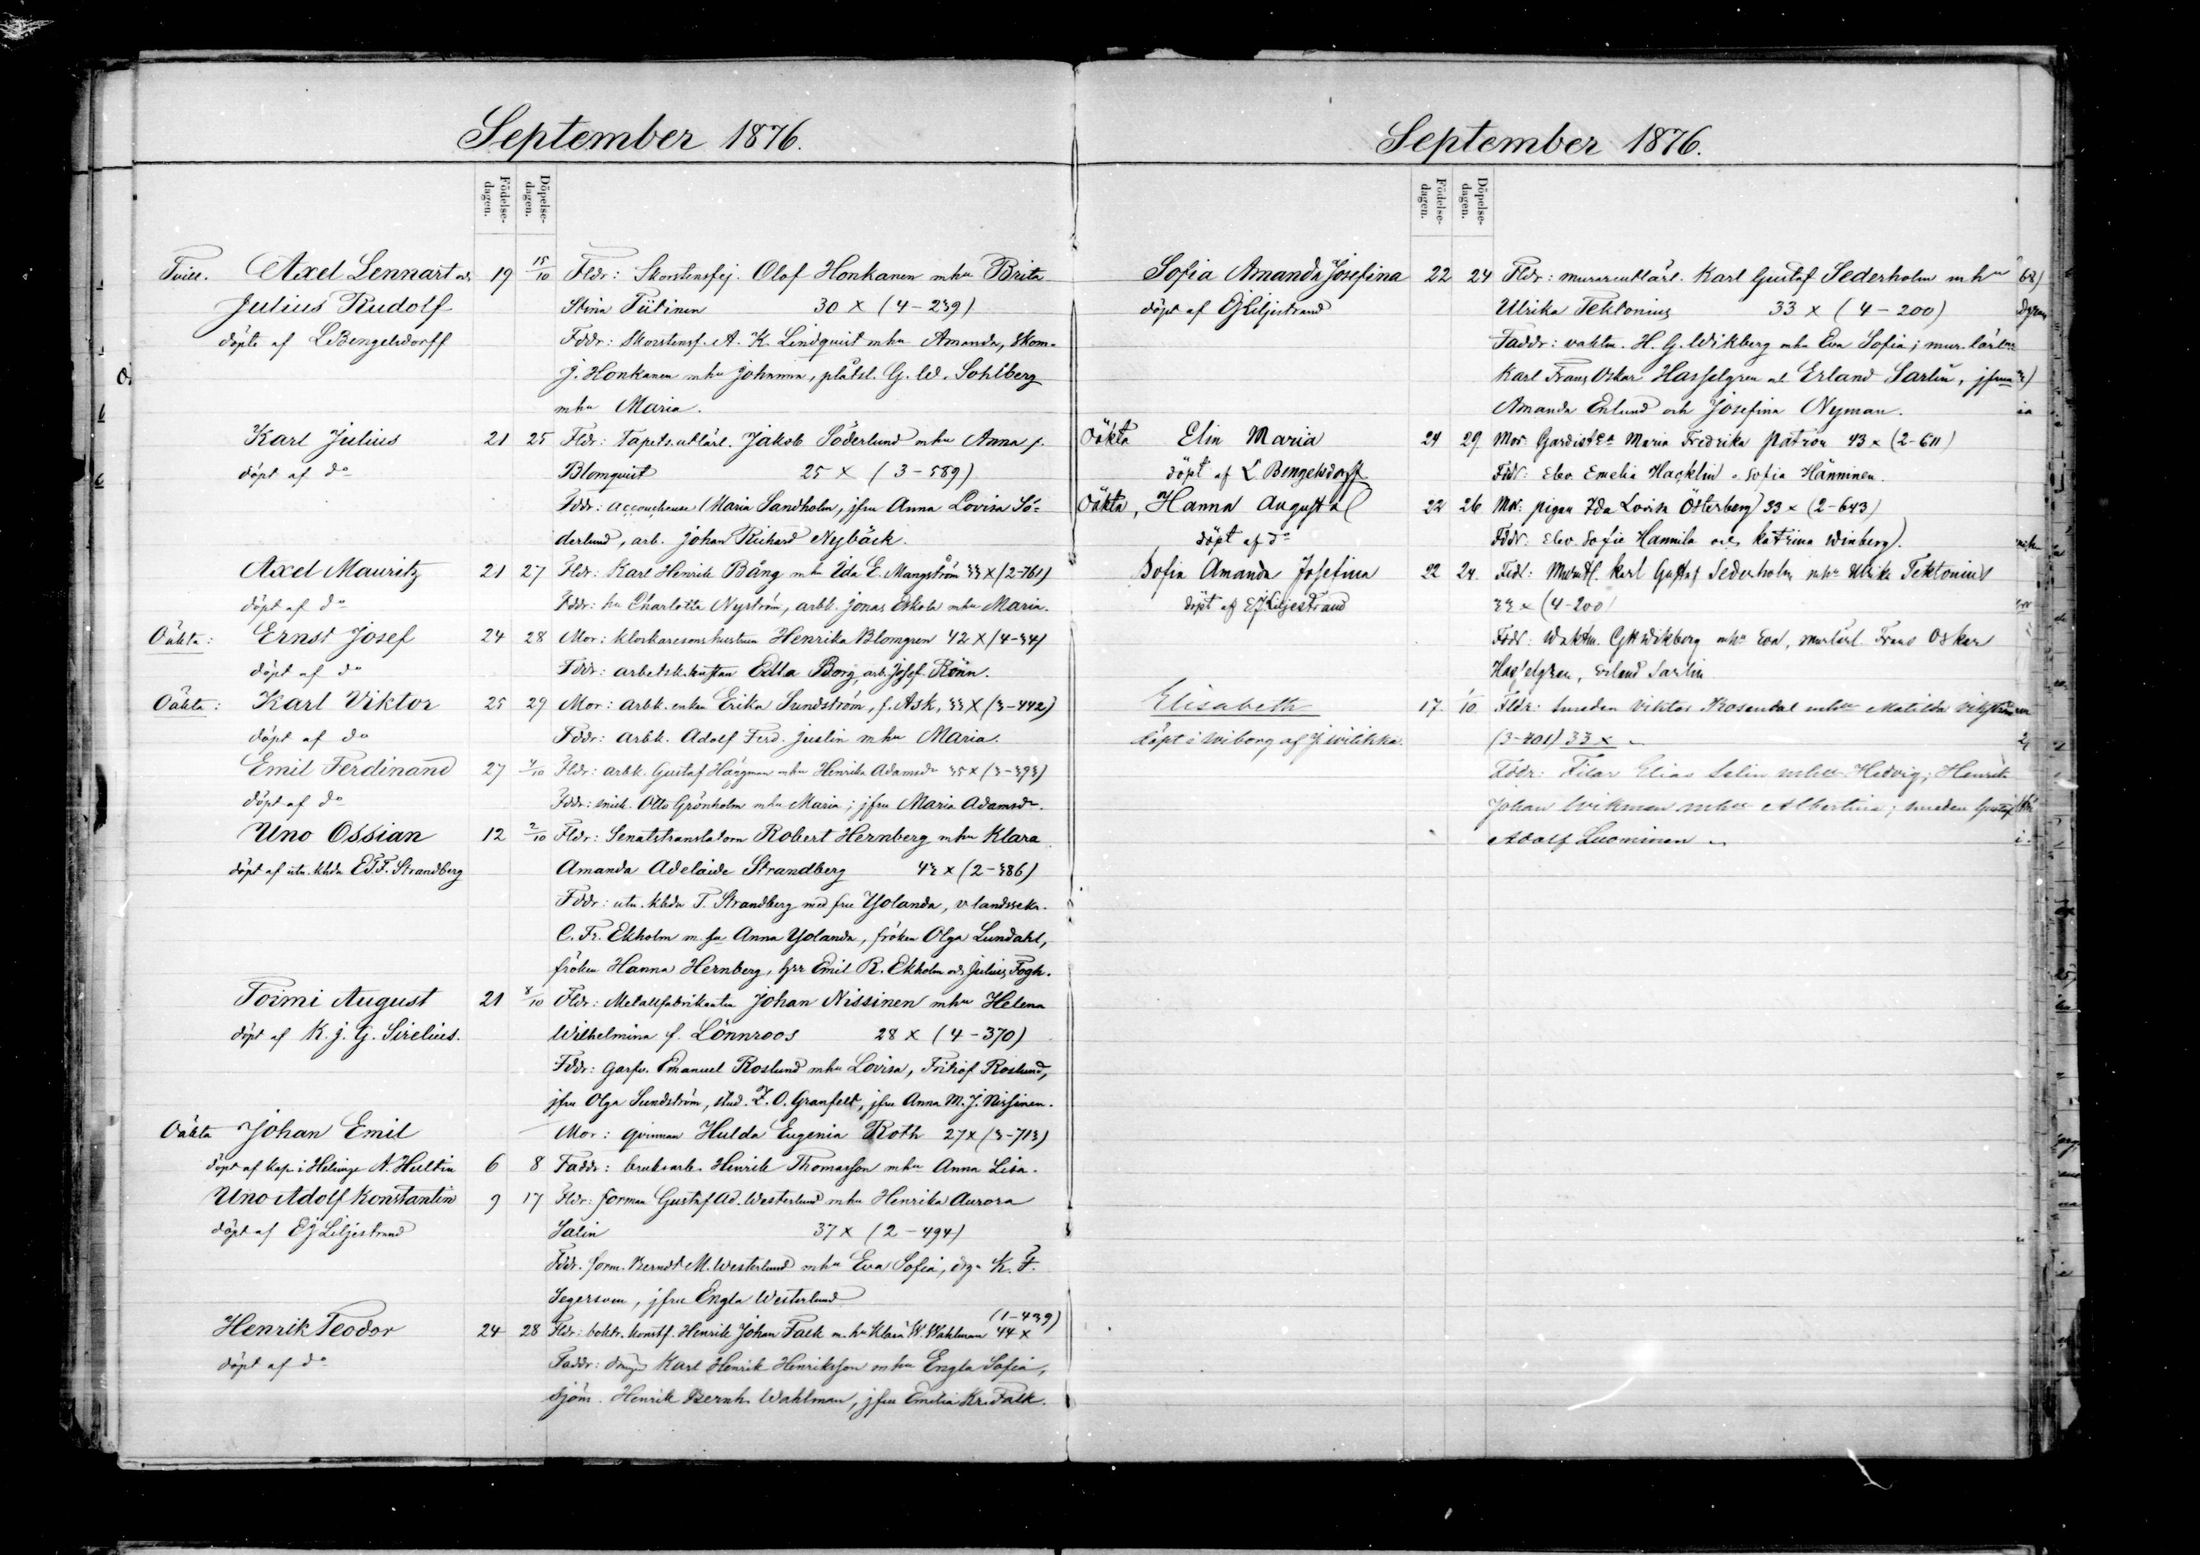 September 1876.
Födelsedagen. Döpelsedagen.
Tvill. Axel Lennart och 19 15/10 Fldr: Skorstensfej. Olof Honkanen mhu Brita
Julius Rudolf Stina Tiitinen 30 x (4-239)
döpte af L Bengelsdorff Fddr: Skorstensf. A. K. Lindquist mhu Amanda, skom.
J. Honkanen mhu Johanna, plåtsl. G. W. Sohlberg
mhu Maria.
Karl Julius 21 25 Fldr: Tapets.utlärl. Jakob Söderlund mhu Anna f.
döpt af do Blomquist 25 x (3-589)
Fddr: accoucheuse Maria Sandholm, jfru Anna Lovisa Sö-
derlund, arb. Johan Rickard Nybäck.
Axel Mauritz 21 27 Fldr: Karl Henrik Bång mhu Ida E. Mangström 33 x (2-761)
döpt af do Fddr: hu Charlotta Nyström, arbk. Jonas Eskola mhu Maria.
Oäkta: Ernst Josef 24 28 Mor: klockaresonshustrun Henrika Blomgren 42 x (4-34)
döpt af do Fddr: arbetsk.hustrun Edla Borg, arb. Josef Rönn.
Oäkta: Karl Viktor 25 29 Mor: arbk. enkan Erika Sundström, f. Ask, 33 x (3-442)
döpt af do Fddr: arbk. Adolf Ferd. Juslin mhu Maria.
Emil Ferdinand 27 /10 Fldr: arbk. Gustaf Häggman mhu Henrika Adamsdr 35 x (3-393)
döpt af do Fddr: snick. Otto Grönholm mhu Maria; jfru Maria Adamsdr.
Uno Ossian 12 2/10 Fldr: Senatstranslatorn Robert Hernberg mhu Klara
döpt af utn. khdn E.T.F. Strandberg Amanda Adelaide Strandberg 43 x (2-386)
Fddr: utn. khdn T. Strandberg med fru Yolanda, v landssekr.
C. Fr. Ekholm m. fru Anna Yolanda, fröken Olga Lundahl,
fröken Hanna Hernberg, hrr Emil R. Ekholm och Julius Fogh.
Toimi August 21 8/10 Fldr: Metallfabrikanten Johan Nissinen mhu Helena
döpt af K. J. G. Sirelius. Wilhelmina f. Lönnroos 28 x (4-370)
Fddr: garfv. Emanuel Roslund mhu Lovisa, Fritiof Roslund,
jfru Olga Sundström, stud. Z. O. Granfelt, jfru Anna M. J. Nissinen.
Oäkta Johan Emil Mor: qvinnan Hulda Eugenia Roth 27 x (3-713)
döpt af kap. i Helsinge N. Hultin 6 8 Faddr: bruksarb. Henrik Thomasson mhu Anna Lisa.
Uno Adolf Konstantin 9 17 Fldr: forman Gustaf Ad. Westerlund mhu Henrika Aurora
döpt af EJ Liljestrand Salin 37 x (2-494)
Fddr. form. Berndt M. Westerlund mhu Eva Sofia, K. F.
Segersven, jfru Engla Westerlund
(1-439)
Henrik Teodor 24 28 Fldr: bokdr. konstf. Henrik Johan Falk m. hu Klara W. Wahlman 44 x
döpt af do Faddr: Karl Henrik Henriksson mhu Engla Sofia,
sjöm. Henrik Bernh. Wahlman, jfru Emilia Kr. Falk.
September 1876.
Födelsedagen. Döpelsedagen.
Sofia Amanda Josefina 22 24 Fldr: murareutlärl. Karl Gustaf Sederholm mhu
döpt af EJ Liljestrand Ulrika Tektonius 33 x (4-200)
Faddr: vaktm. H. G. Wikberg mhu Eva Sofia; mur. lärl.
Karl Frans Oskar Hasselgren och Erland Sarlin, jfrurna
Amanda Enlund och Josefina Nyman.
Oäkta Elin Maria 24 29 Mor: Maria Fredrika Patron 43 x (2-611)
döpt af L Bengelsdorff Fddr: Elev. Emelia Hacklin o Sofia Hänninen.
Oäkta, Hanna Augusta 22 26 Mor: pigan Ida Lovisa Österberg 33 x (2-643)
döpt af do Fddr: Elev. Sofie Hannila och Katrina Winberg.
Sofia Amanda Josefina 22 24 Karl Gustaf Sederholm mhu Ulrika Tektonius
döpt af EJ Liljestrand 33 x (4-200)
Fddr: Waktm. Wikberg mhu Eva, murlärl. Frans Oskar
Hasselgren, Erland Sarlin
Elisabeth 17 1/10 Fldr: smeden Viktor Rosendal mhu Matilda Vikström
döpt i Wiborg af (3-401) 33 x
Fddr: Filar Elias Salin mhu Hedvig; Henrik
Johan Wikman mhu Albertina; smeden Gustaf
Adolf Luominen